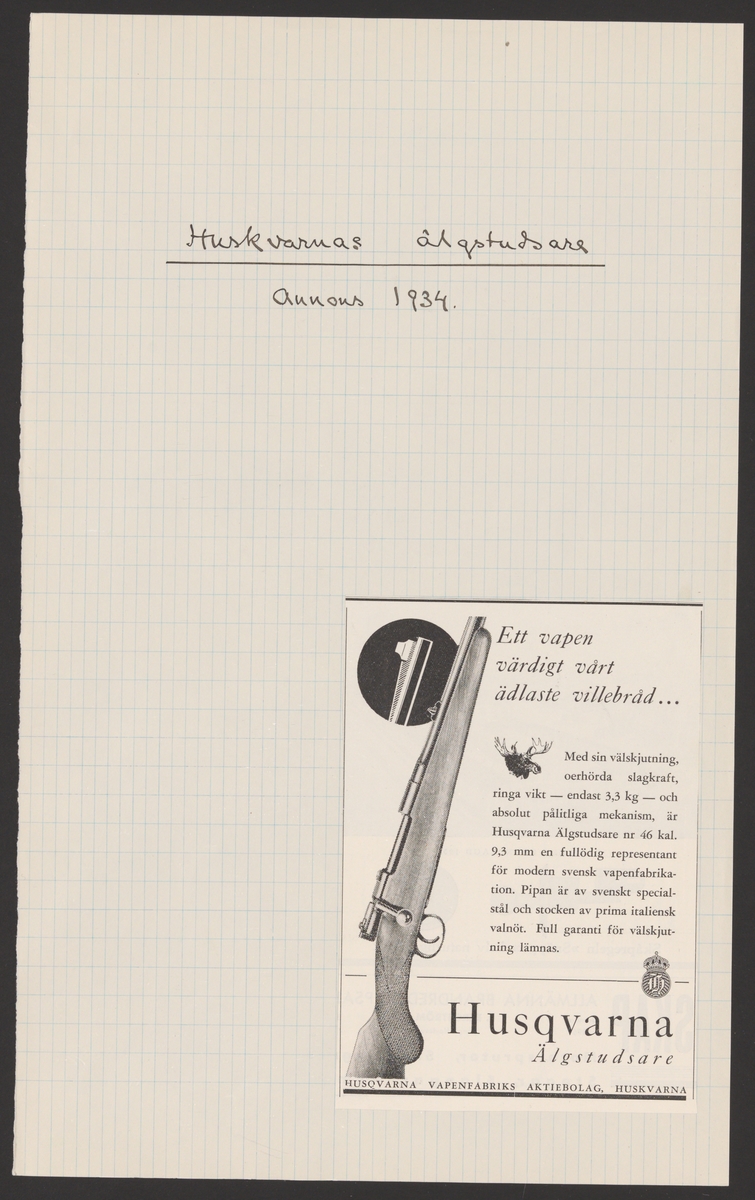 Huskvarnas älgstudsare
Annons 1934.
Ett vapen
värdigt vårt
ädlaste villebråd...
Med sin välskjutning,
oerhörda slagkraft,
ringa vikt — endast 3,3 kg — och
absolut pålitliga mekanism, är
Husqvarna Älgstudsare nr 46 kal.
9,3 mm en fullödig representant
för modern svensk vapenfabrika-
tion. Pipan är av svenskt special-
stål och stocken av prima italiensk
valnöt. Full garanti för välskjut-
ning lämnas.
Husqvarna
Älgstudsare
HUSQVARNA VAPENFABRIKS AKTIEBOLAG, HUSKVARNA